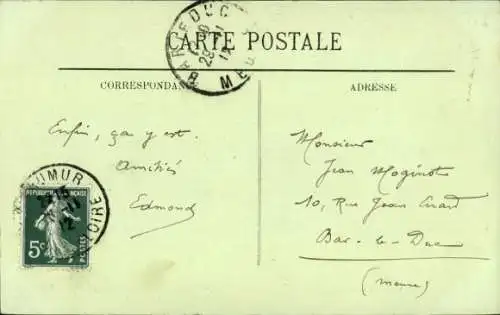 CARTE POSTALE
BAR-LE-DUC
28
MEUSE
CORRESPONDANCE
ADRESSE
Enfin, ça y est.
Amitiés
Edmond
Monsieur
Jean Maginot
10, Rue Jean Errard
Bar-le-Duc
(Meuse)
SAUMUR
LOIRE
12
REPUBLIQUE FRANÇAISE
5c
POSTES